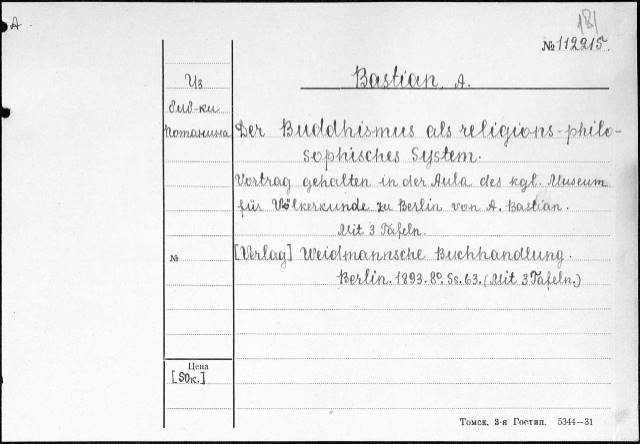 А.
181
№112215.
Bastian, A.
Из
биб-ки
Потанина
Der Buddhismus als religions-philo-
sophisches System.
Vortrag gehalten in der Aula des kgl. Museum
für Völkerkunde zu Berlin von A. Bastian.
Mit 3 Tafeln.
№
[Verlag] Weidmannsche Buchhandlung.
Berlin. 1893. 8º. Ss. 63. (Mit 3 Tafeln.)
Цена
[50к.]
Томск, 3-я Гостип. 5344—31